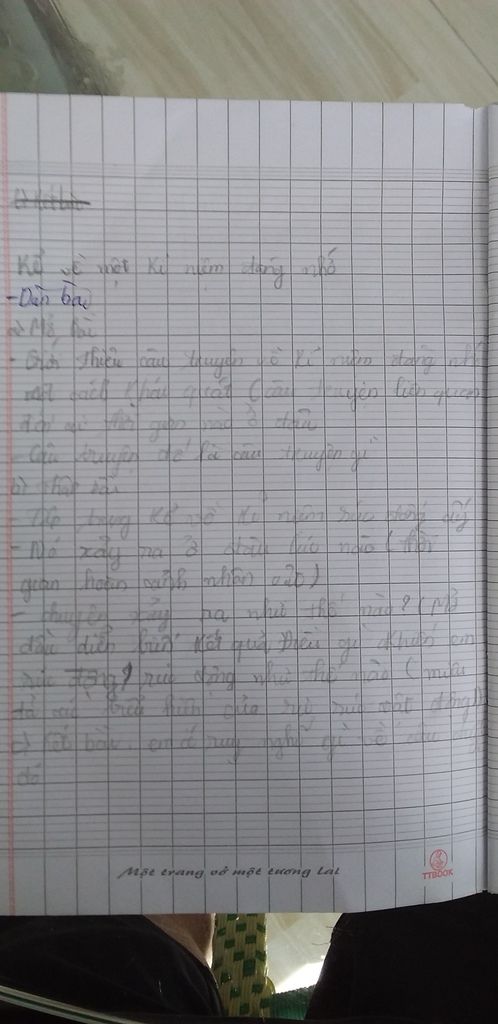 Kể về một kỉ niệm đáng nhớ
- Dàn bài
a) Mở bài
- Giới thiệu câu truyện về kỉ niệm đáng nhớ
một cách khái quát (câu truyện liên quan
đến ai thời gian nào ở đâu
- Câu truyện đó là câu truyện gì
b) thân bài
- tập trung kể về kỉ niệm xúc động ấy
- Nó xảy ra ở đâu lúc nào (thời
gian hoàn cảnh nhân vật)
- chuyện xảy ra như thế nào? (Mở
đầu diễn biến kết quả, Điều gì khiến em
xúc động) xúc động như thế nào (miêu
tả các biểu hiện của sự xúc động)
c) kết bài: em có suy nghĩ gì về câu
đó
Một trang vở một tương lai
TTBOOK